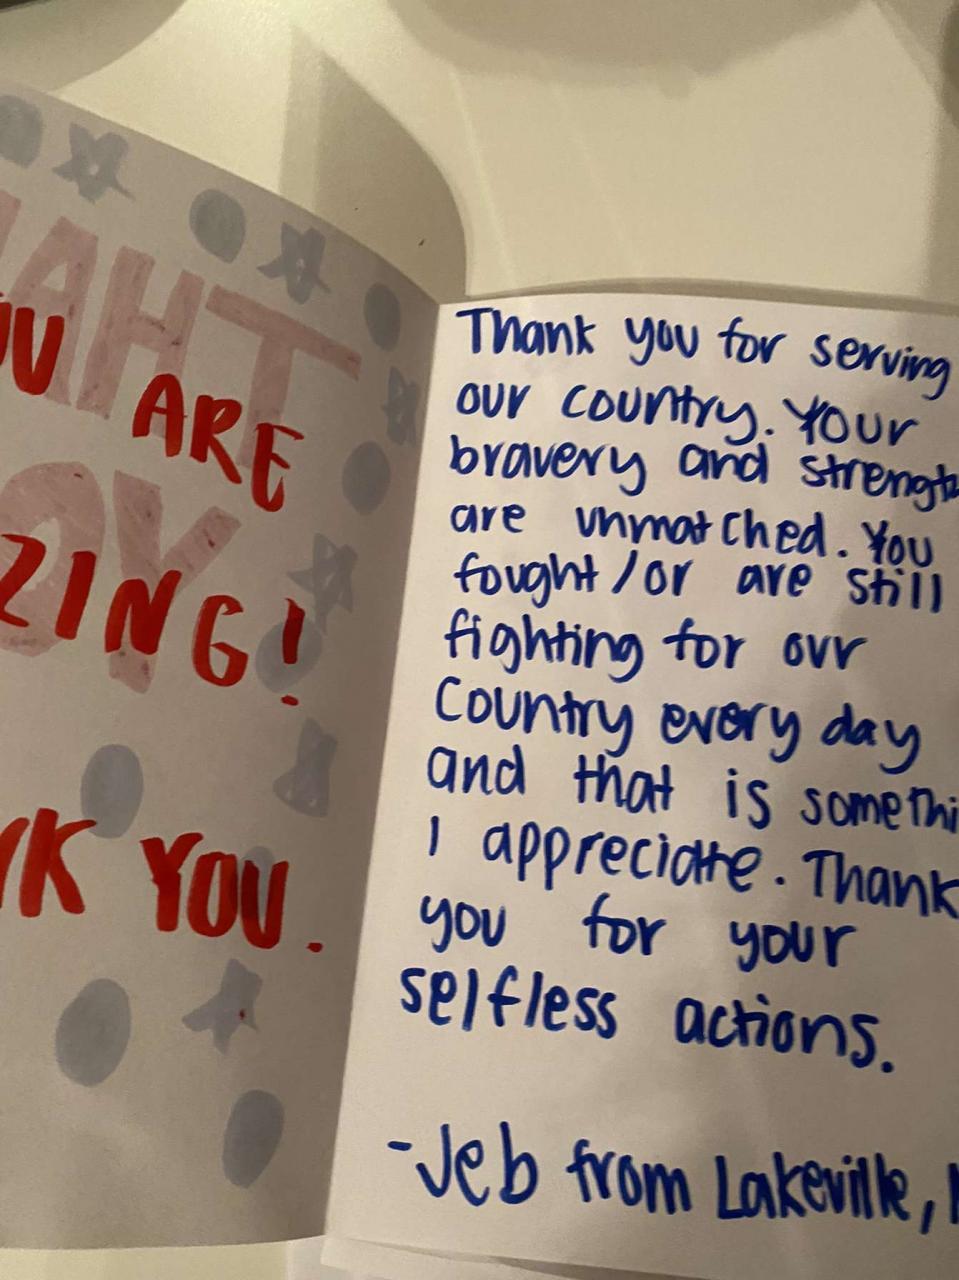 ARE
ZING!
YOU.
Thank you for serving
our country. Your
bravery and strength
are unmatched. You
fought/or are still
fighting for our
country every day
and that is somethi
I appreciate. Thank
you for your
selfless actions.
-Jeb from Lakeville,